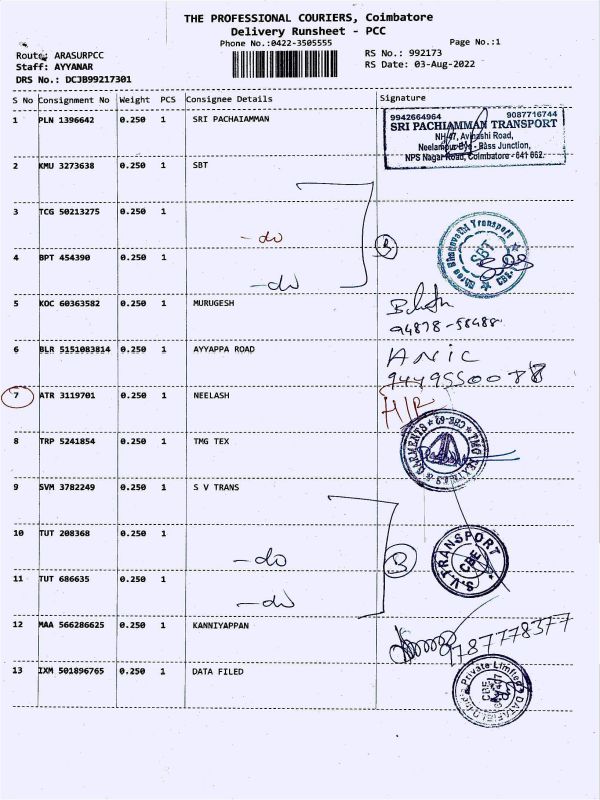 THE PROFESSIONAL COURIERS, Coimbatore
Delivery Runsheet - PCC
Phone No.:0422-3505555
Page No.:1
Route: ARASURPCC
Staff: AYYANAR
DRS No.: DCJB99217301
RS No.: 992173
RS Date: 03-Aug-2022
S No Consignment No Weight PCS Consignee Details Signature
1 PLN 1396642 0.250 1 SRI PACHAIAMMAN
9942664964 9087716744
SRI PACHIAMMAN TRANSPORT
NH-47, Avinashi Road,
Neelampur Bye - Bass Junction,
NPS Nagar Road, Coimbatore - 641 062.
2 KMU 3273638 0.250 1 SBT
3 TCG 50213275 0.250 1
- do
Shree Bhagavathi Transport
SBT
CBE
4 BPT 454390 0.250 1
- do
5 KOC 60363582 0.250 1 MURUGESH
94878-58488
6 BLR 5151083814 0.250 1 AYYAPPA ROAD
ANIC
7 ATR 3119701 0.250 1 NEELASH
8 TRP 5241854 0.250 1 TMG TEX
9 SVM 3782249 0.250 1 S V TRANS
10 TUT 208368 0.250 1
- do
S.V. TRANSPORT
CBE
11 TUT 686635 0.250 1
- do
12 MAA 566286625 0.250 1 KANNIYAPPAN
9787778377
13 IXM 501896765 0.250 1 DATA FILED
Private Limited
CBE